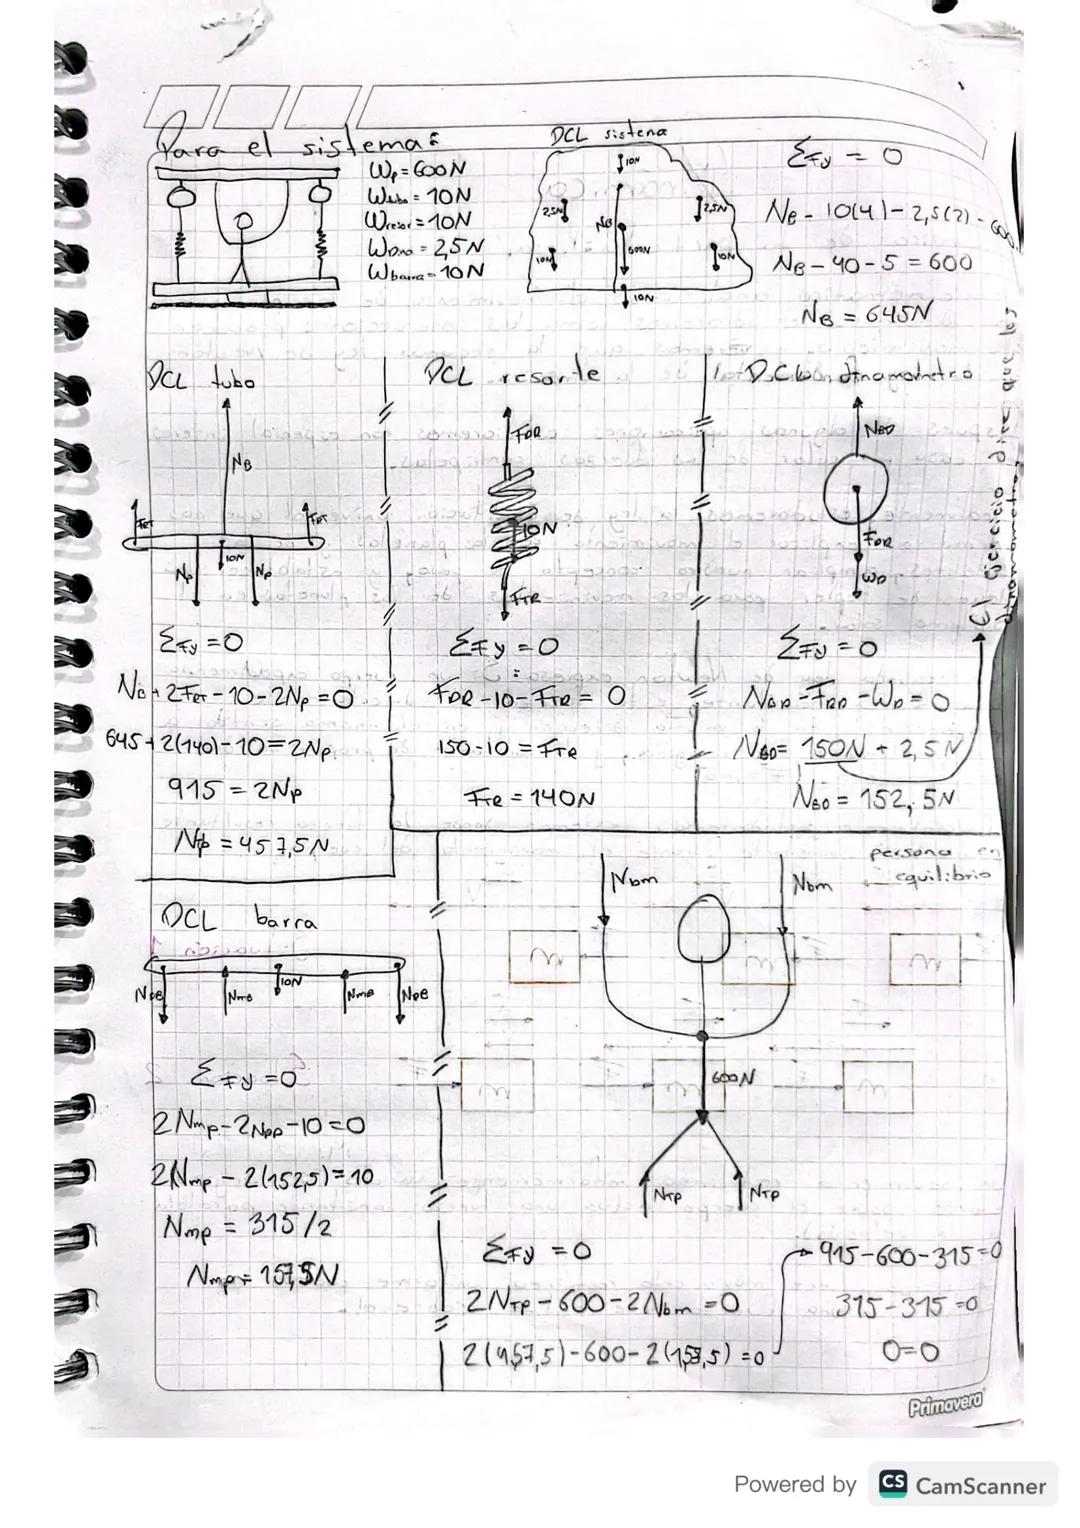 Para el sistema:
Wp = 600N
Wtubo = 10N
Wresor = 10N
WDino = 2,5N
Wbarra = 10N
DCL sistema
10N
2,5N
2,5N
NB
600N
10N
10N
10N
ΣFy = 0
NB - 10(4) - 2,5(2) - 600
NB - 40 - 5 = 600
NB = 645N
DCL tubo
NB
FRT
FRT
Np
10N
Np
ΣFy = 0
NB + 2FRT - 10 - 2Np = 0
645 + 2(140) - 10 = 2Np
915 = 2Np
Np = 457,5N
DCL resorte
FDR
10N
FTR
ΣFy = 0
FDR - 10 - FTR = 0
150 - 10 = FTR
FTR = 140N
DCL dinamometro
NBD
FDR
WD
ΣFy = 0
NBD - FRD - WD = 0
NBD = 150N + 2,5N
NBD = 152,5N
El ejercicio dice que los
dinamometros
DCL barra
NDB
NmB
10N
NmB
NDB
ΣFy = 0
2Nmp - 2NDD - 10 = 0
2Nmp - 2(152,5) = 10
Nmp = 315/2
Nmp = 157,5N
persona en
equilibrio
Nbm
Nbm
600N
NTP
NTP
ΣFy = 0
2NTP - 600 - 2Nbm = 0
2(457,5) - 600 - 2(157,5) = 0
915 - 600 - 315 = 0
315 - 315 = 0
0 = 0
Primavera
Powered by CS CamScanner